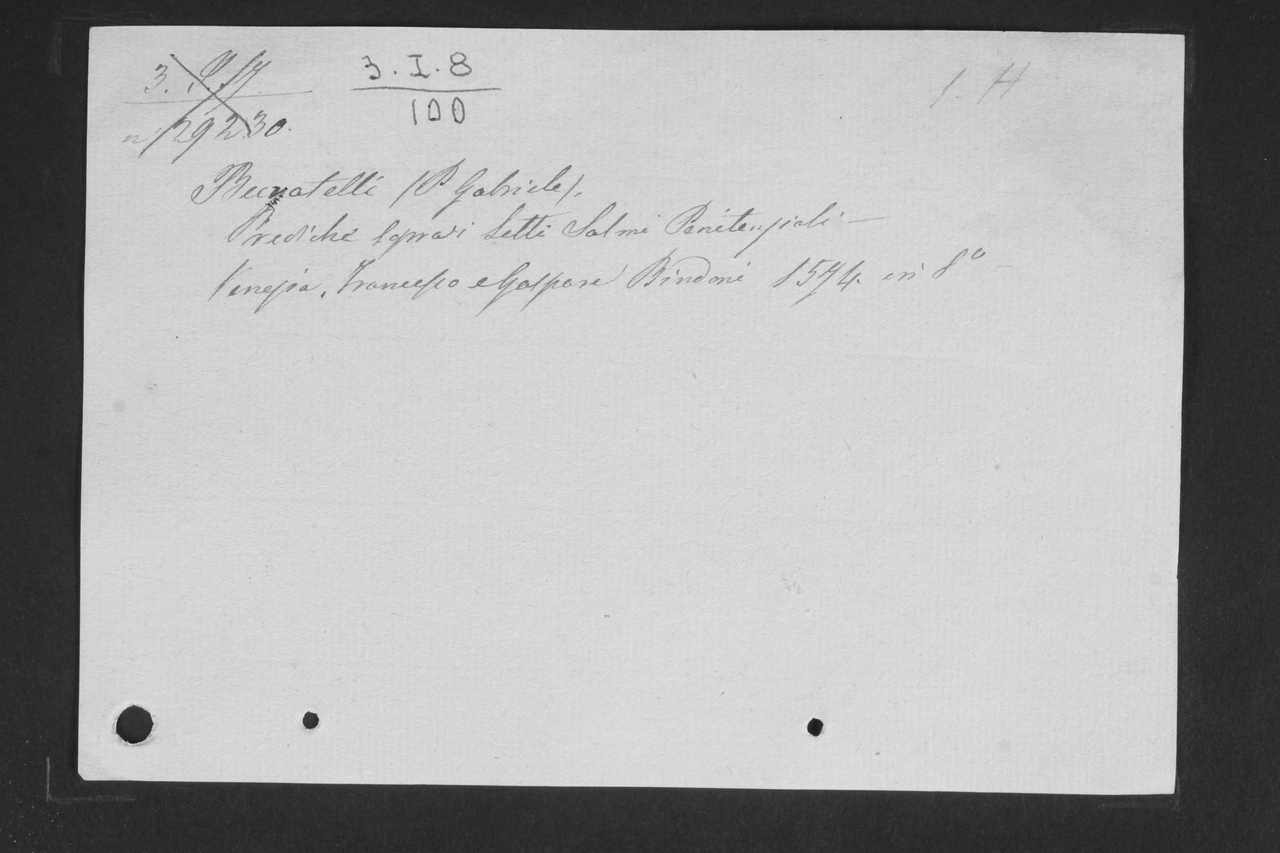 3. I. 8
100
1. H
n. 292.30.
Buratelli (P. Gabriele).
Prediche sopra i Sette Salmi Penitenziali —
Venezia, Francesco e Gaspare Bindoni 1574. in 8º —